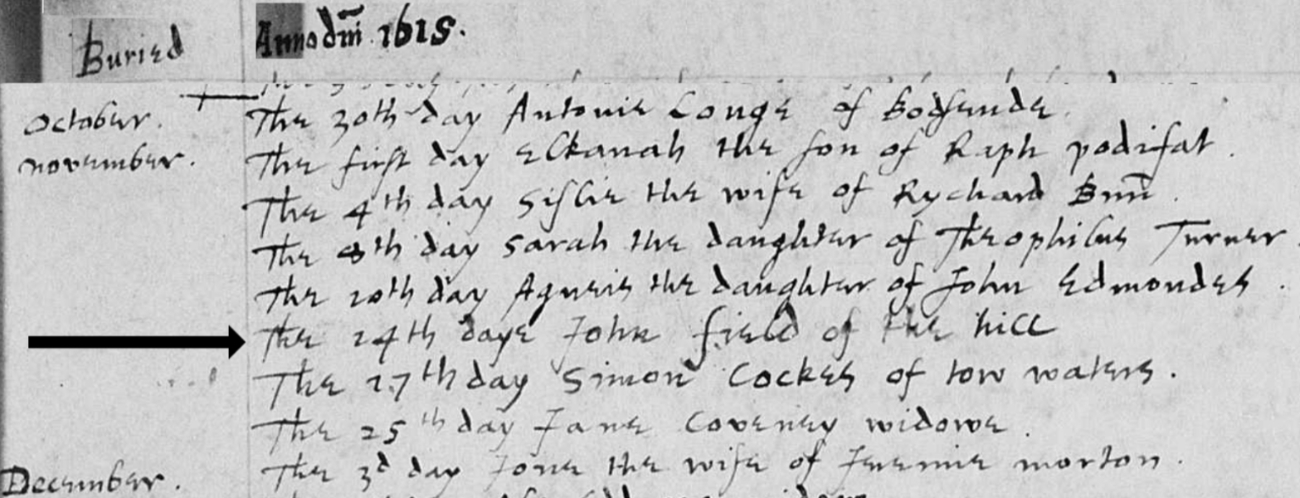 Buried Anno dm̄ 1615.
October. The 30th day Antonie Longe of Bodsende.
november. The first day Elkanah the son of Raph podifat.
The 4th day Sislie the wife of Rychard Bnn̄.
The 8th day Sarah the daughter of Theophilus Turner
The 10th day Agneis the daughter of John Edmondes.
The 14th daye John field of the hill
The 17th day Simon Cockes of tow waters.
The 25th day Jane Coveney widowe.
December. The 3d day Jone the wife of Jeremie morton.